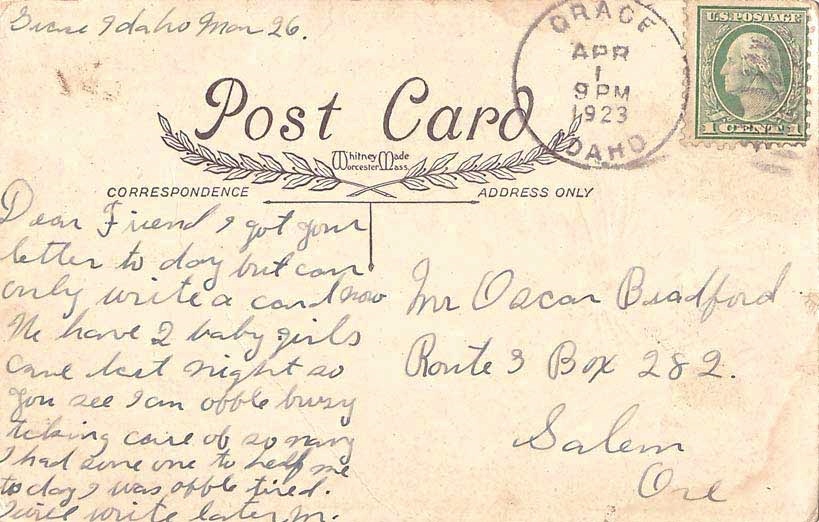 Grace Idaho Mar 26.
GRACE
APR
1
9 PM
1923
IDAHO
U.S. POSTAGE
1 CENT 1
Post Card
Whitney Made
Worcester Mass.
CORRESPONDENCE
ADDRESS ONLY
Dear Friend I got your
letter to day but can
only write a card now
We have 2 baby girls
came last night so
you see I am offle busy
taking care of so many
I had some one to help me
to day I was offle tired.
I will write later M.
Mr Oscar Bradford
Route 3 Box 282.
Salem
Ore